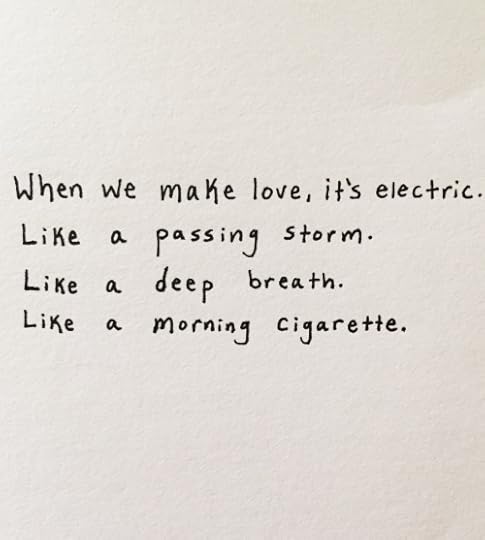 When we make love, it's electric.
Like a passing storm.
Like a deep breath.
Like a morning cigarette.